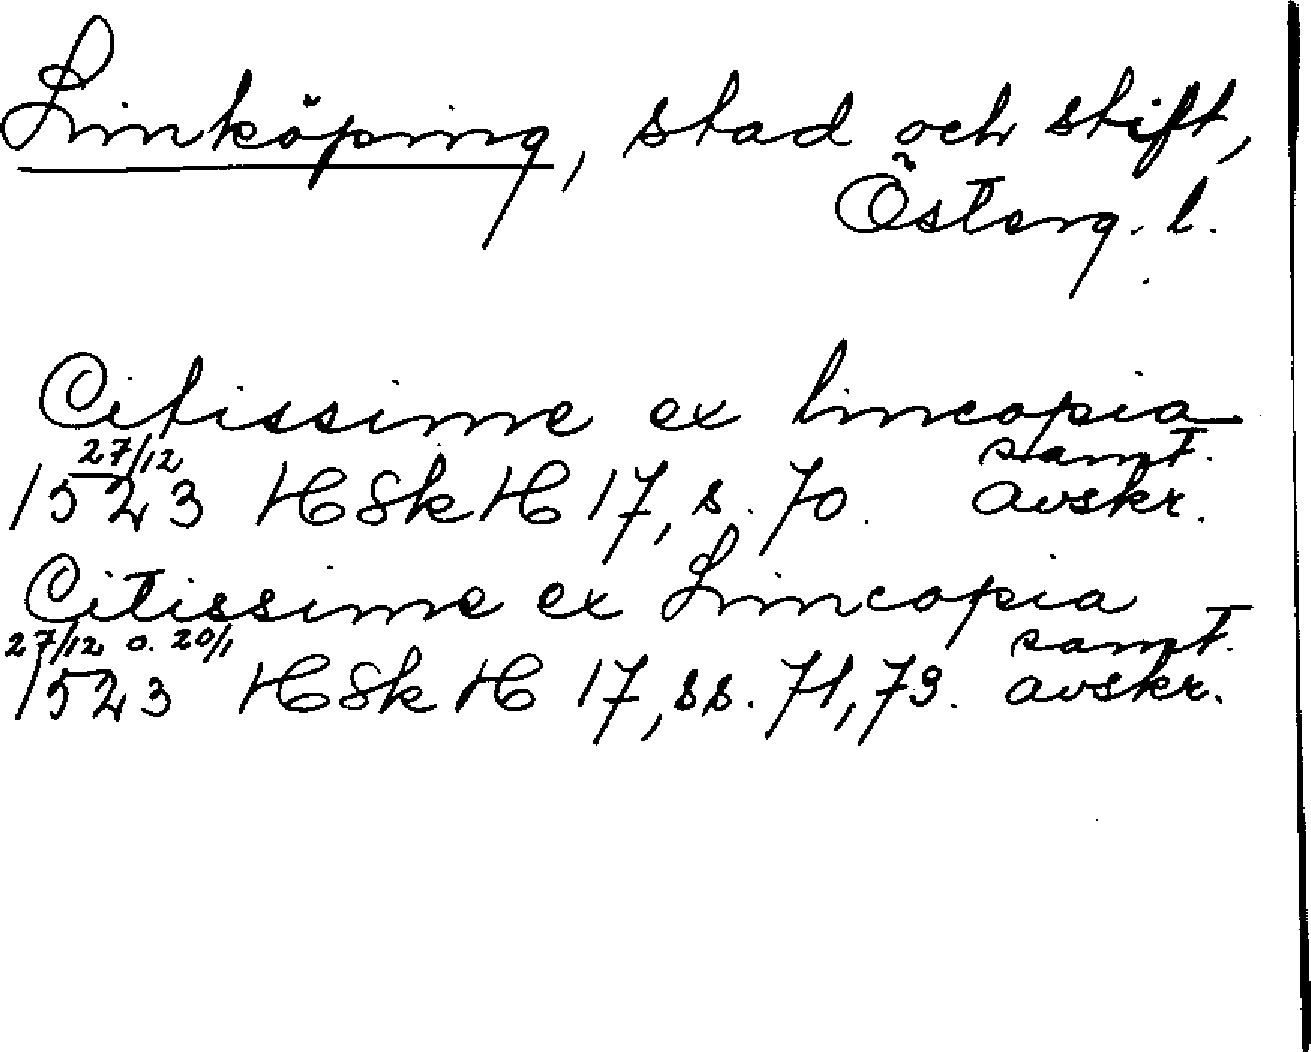 Linköping, stad och stift,
Österg. l.
Citissime ex lincopia
27/12 samt.
1523 HSkH 17, s. 70. avskr.
Citissime ex Lincopia
27/12 o. 20/1 samt.
1523 HSkH 17, ss. 71, 73. avskr.